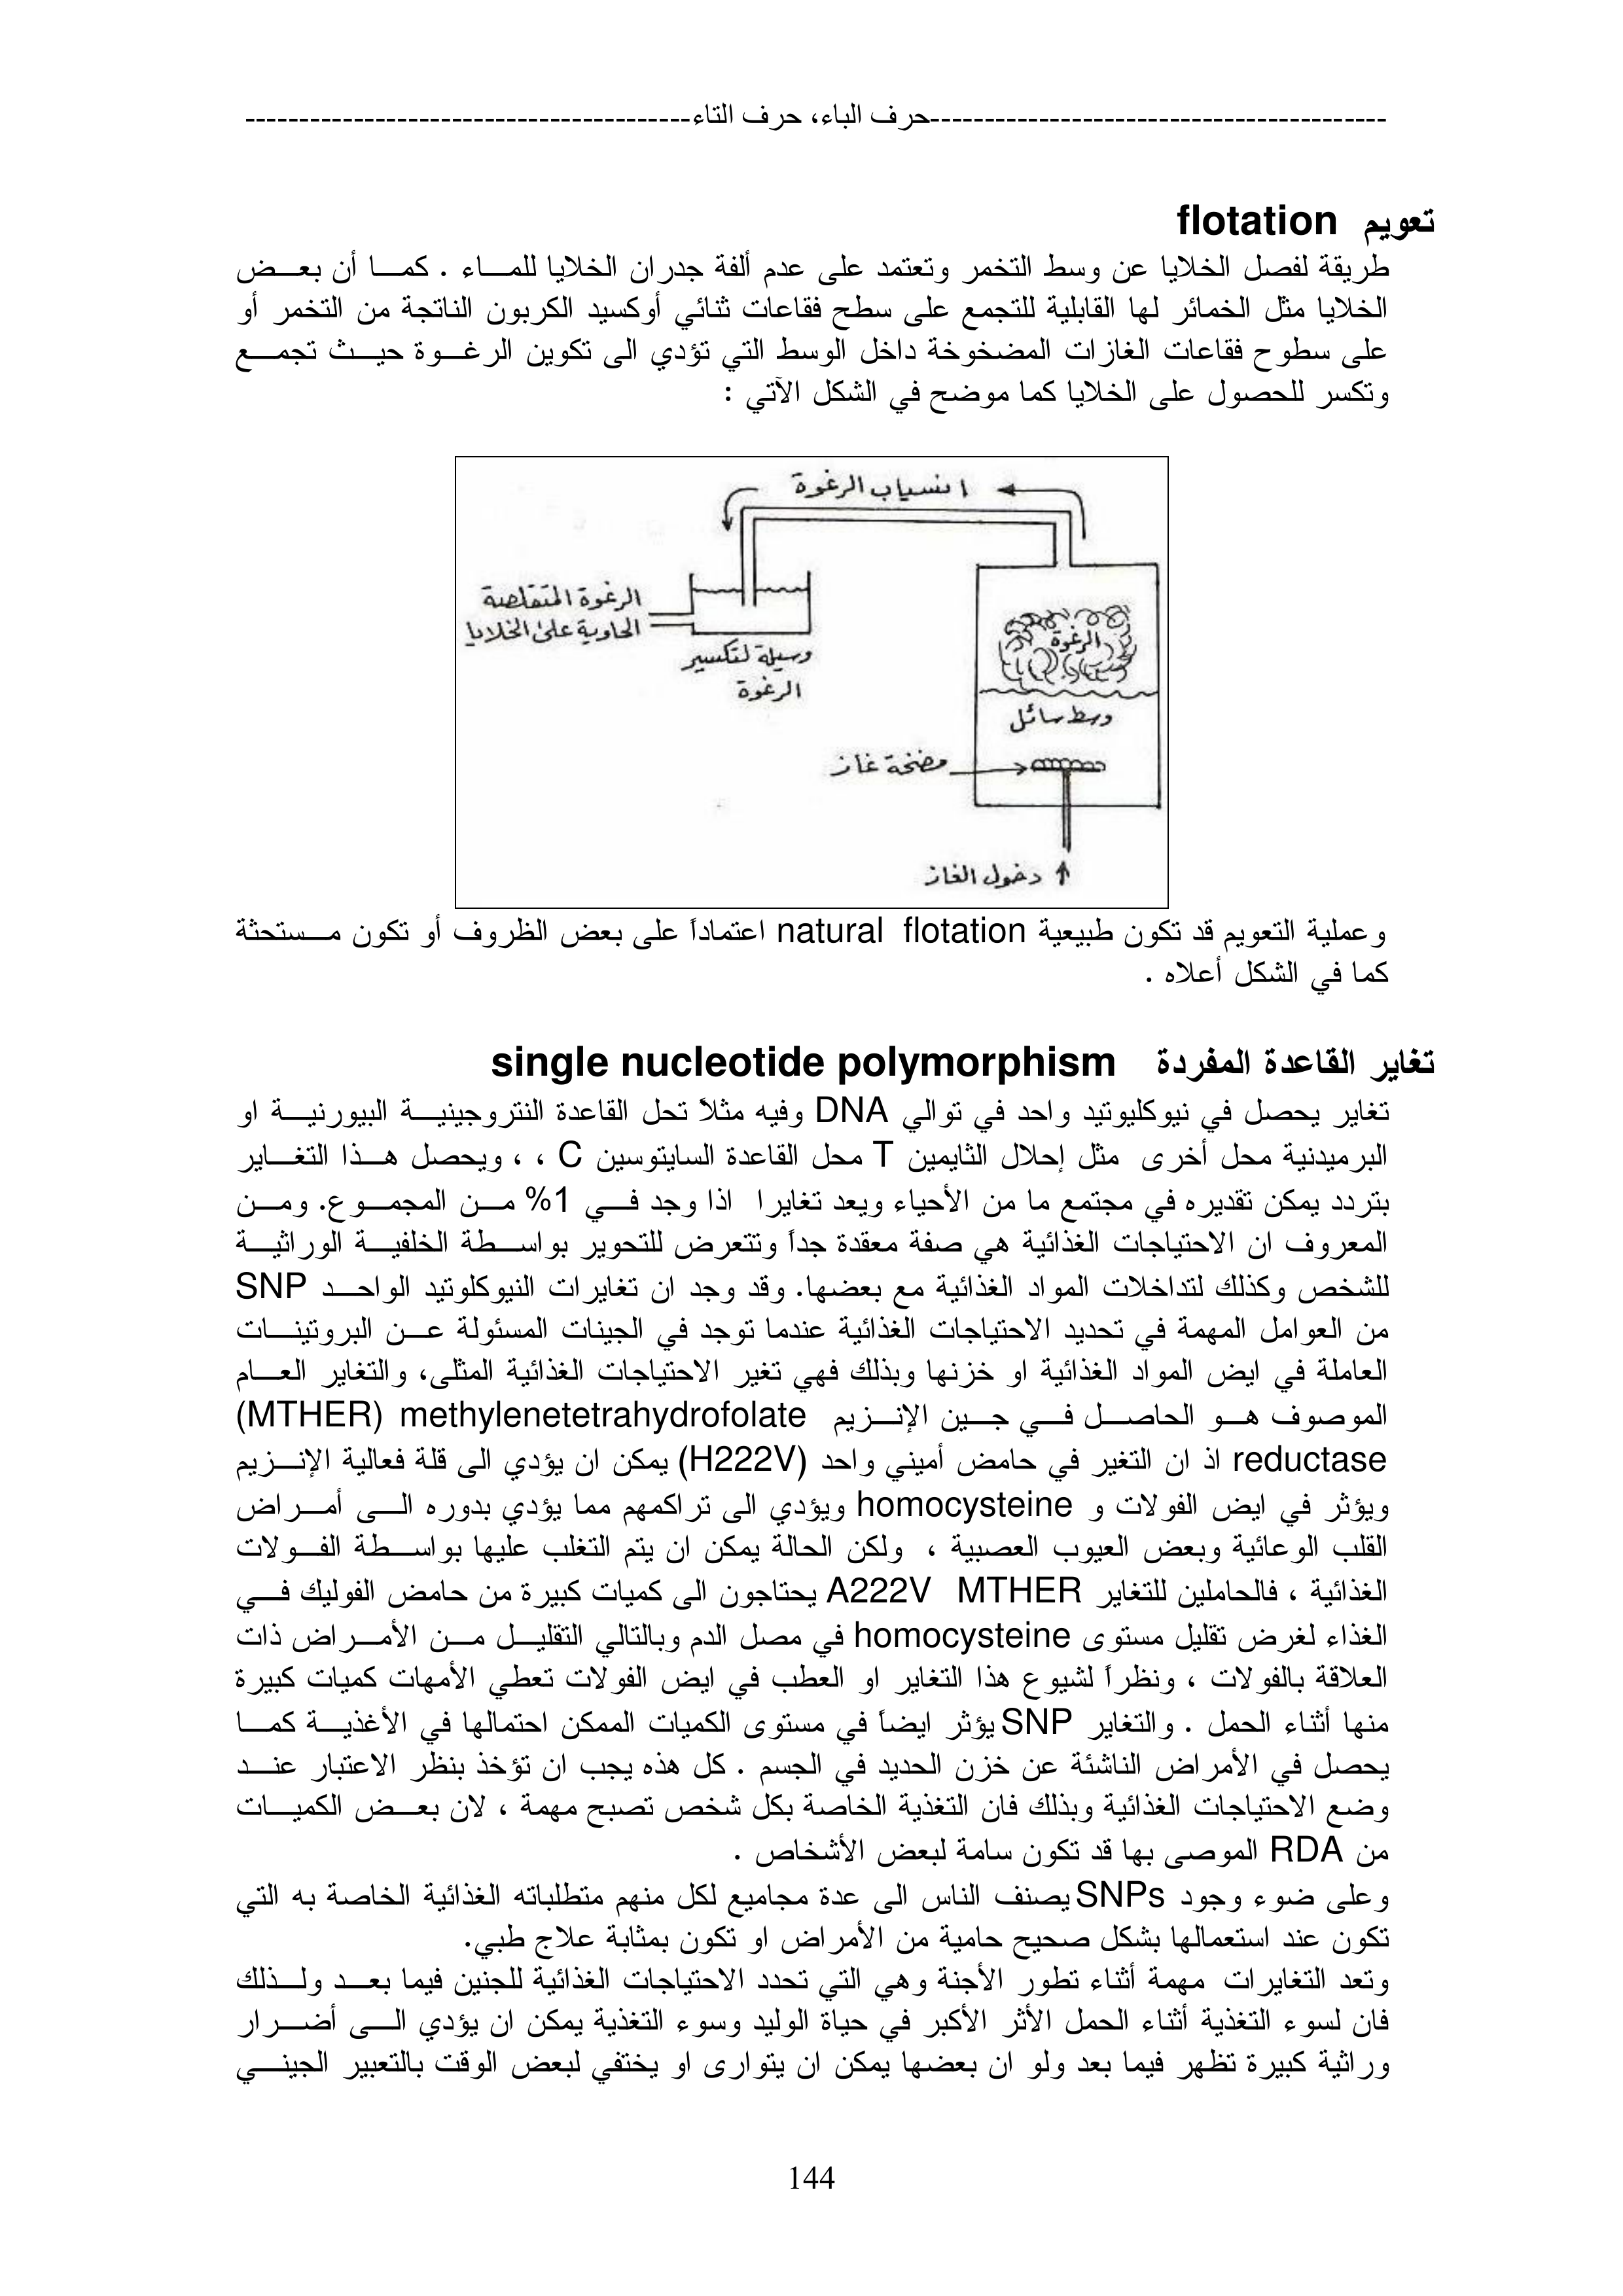 -----------------------------------------حرف الباء، حرف التاء-----------------------------------------
تعويم flotation
طريقة لفصل الخلايا عن وسط التخمر وتعتمد على عدم ألفة جدران الخلايا للماء . كما أن بعض
الخلايا مثل الخمائر لها القابلية للتجمع على سطح فقاعات ثنائي أوكسيد الكربون الناتجة من التخمر أو
على سطوح فقاعات الغازات المضخوخة داخل الوسط التي تؤدي الى تكوين الرغوة حيث تجمع
وتكسر للحصول على الخلايا كما موضح في الشكل الآتي :
انسياب الرغوة
الرغوة المتقلصة
الحاوية على الخلايا
وسيلة لتكسير
الرغوة
الرغوة
وسط سائل
مضخة غاز
دخول الغاز
وعملية التعويم قد تكون طبيعية natural flotation اعتماداً على بعض الظروف أو تكون مستحثة
كما في الشكل أعلاه .
تغاير القاعدة المفردة single nucleotide polymorphism
تغاير يحصل في نيوكليوتيد واحد في توالي DNA وفيه مثلاً تحل القاعدة النتروجينية البيورنية او
البرميدنية محل أخرى مثل إحلال الثايمين T محل القاعدة السايتوسين C ، ، ويحصل هذا التغاير
بتردد يمكن تقديره في مجتمع ما من الأحياء ويعد تغايرا اذا وجد في 1% من المجموع. ومن
المعروف ان الاحتياجات الغذائية هي صفة معقدة جداً وتتعرض للتحوير بواسطة الخلفية الوراثية
للشخص وكذلك لتداخلات المواد الغذائية مع بعضها. وقد وجد ان تغايرات النيوكلوتيد الواحد SNP
من العوامل المهمة في تحديد الاحتياجات الغذائية عندما توجد في الجينات المسئولة عن البروتينات
العاملة في ايض المواد الغذائية او خزنها وبذلك فهي تغير الاحتياجات الغذائية المثلى، والتغاير العام
الموصوف هو الحاصل في جين الإنزيم methylenetetrahydrofolate (MTHER)
reductase اذ ان التغير في حامض أميني واحد (H222V) يمكن ان يؤدي الى قلة فعالية الإنزيم
ويؤثر في ايض الفولات و homocysteine ويؤدي الى تراكمهم مما يؤدي بدوره الى أمراض
القلب الوعائية وبعض العيوب العصبية ، ولكن الحالة يمكن ان يتم التغلب عليها بواسطة الفولات
الغذائية ، فالحاملين للتغاير A222V MTHER يحتاجون الى كميات كبيرة من حامض الفوليك في
الغذاء لغرض تقليل مستوى homocysteine في مصل الدم وبالتالي التقليل من الأمراض ذات
العلاقة بالفولات ، ونظراً لشيوع هذا التغاير او العطب في ايض الفولات تعطي الأمهات كميات كبيرة
منها أثناء الحمل . والتغاير SNP يؤثر ايضاً في مستوى الكميات الممكن احتمالها في الأغذية كما
يحصل في الأمراض الناشئة عن خزن الحديد في الجسم . كل هذه يجب ان تؤخذ بنظر الاعتبار عند
وضع الاحتياجات الغذائية وبذلك فان التغذية الخاصة بكل شخص تصبح مهمة ، لان بعض الكميات
من RDA الموصى بها قد تكون سامة لبعض الأشخاص .
وعلى ضوء وجود SNPs يصنف الناس الى عدة مجاميع لكل منهم متطلباته الغذائية الخاصة به التي
تكون عند استعمالها بشكل صحيح حامية من الأمراض او تكون بمثابة علاج طبي.
وتعد التغايرات مهمة أثناء تطور الأجنة وهي التي تحدد الاحتياجات الغذائية للجنين فيما بعد ولذلك
فان لسوء التغذية أثناء الحمل الأثر الأكبر في حياة الوليد وسوء التغذية يمكن ان يؤدي الى أضرار
وراثية كبيرة تظهر فيما بعد ولو ان بعضها يمكن ان يتوارى او يختفي لبعض الوقت بالتعبير الجيني
144